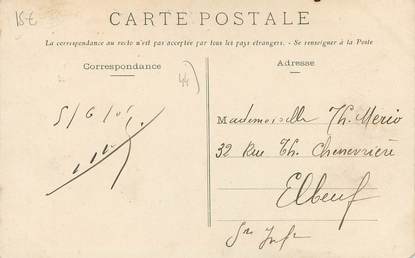 15€
CARTE POSTALE
La correspondance au recto n'est pas acceptée par tous les pays étrangers. - Se renseigner à la Poste
Correspondance
Adresse
44)
5/6/05.
Mademoiselle Th. Merio
32 Rue Th. Chennevière
Elbeuf
Sne Infre